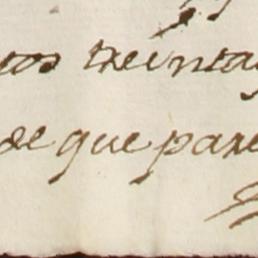 os treinta
de que pare